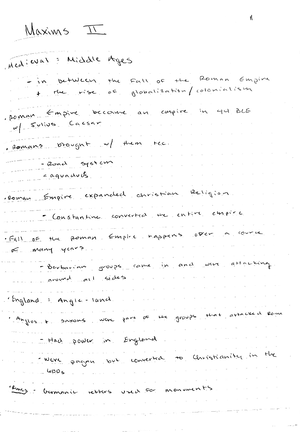 Maxims II
• Medieval : Middle Ages
- in between the Fall of the Roman Empire
+ the rise of globalization/colonialism
• Roman Empire became an empire in 44 BCE
w/ Julius Caesar
• Romans brought w/ them tec.
• Road system
• aquaducts
• Roman Empire expanded christian Religion
- Constantine converted the entire empire
• Fall of the Roman Empire happens over a course
of many years
- Barbarian groups came in and were attacking
around all sides
• England : Angle-land
• Angles + Saxons were part of the groups that attacked Rome
- Had power in England
- Were pagan but converted to Christianity in the
400s
• Runes - Germanic letters used for monuments